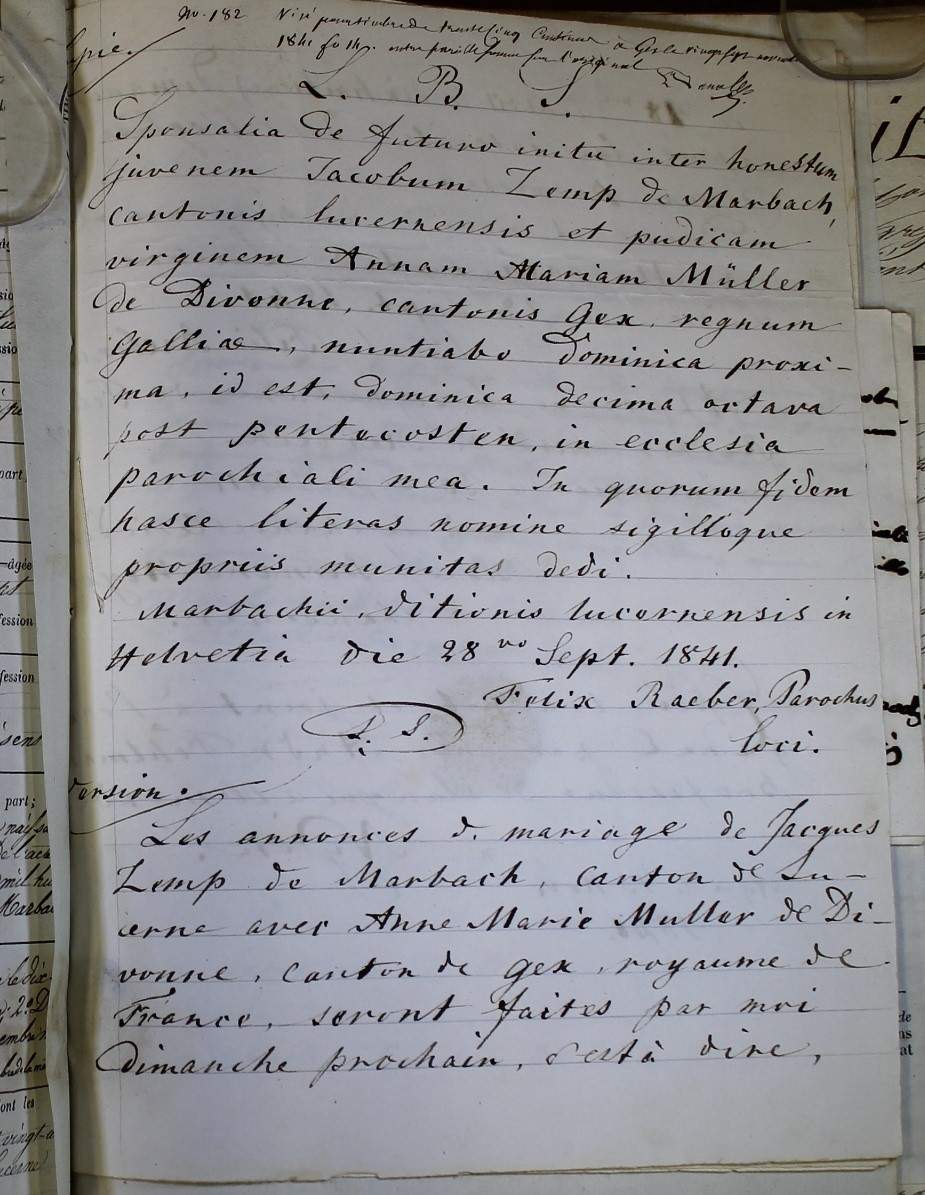 No. 182 Visé pour timbre de trente cinq Centimes à Gex le vingt sept
1841 fo
pie.
L. B. S.
Sponsalia de futuro initu inter honestum
juvenem Jacobum Zemp de Marbach,
cantonis lucernensis et pudicam
virginem Annam Mariam Müller
de Divonne, cantonis Gex, regnum
Galliæ, nuntiabo Dominica proxi-
ma, id est, Dominica decima octava
post pentecosten, in ecclesia
parochiali mea. In quorum fidem
hasce literas nomine sigilloque
propriis munitas dedi.
Marbachii, ditionis lucernensis in
Helvetia die 28 vo Sept. 1841.
Felix Raeber, Parochus
L. S. loci.
Version.
Les annonces d. mariage de Jacques
Zemp de Marbach, canton de Lu-
cerne avec Anne Marie Muller de Di-
vonne, canton de Gex, royaume de
France, seront faites par moi
Dimanche prochain, c'est à dire,